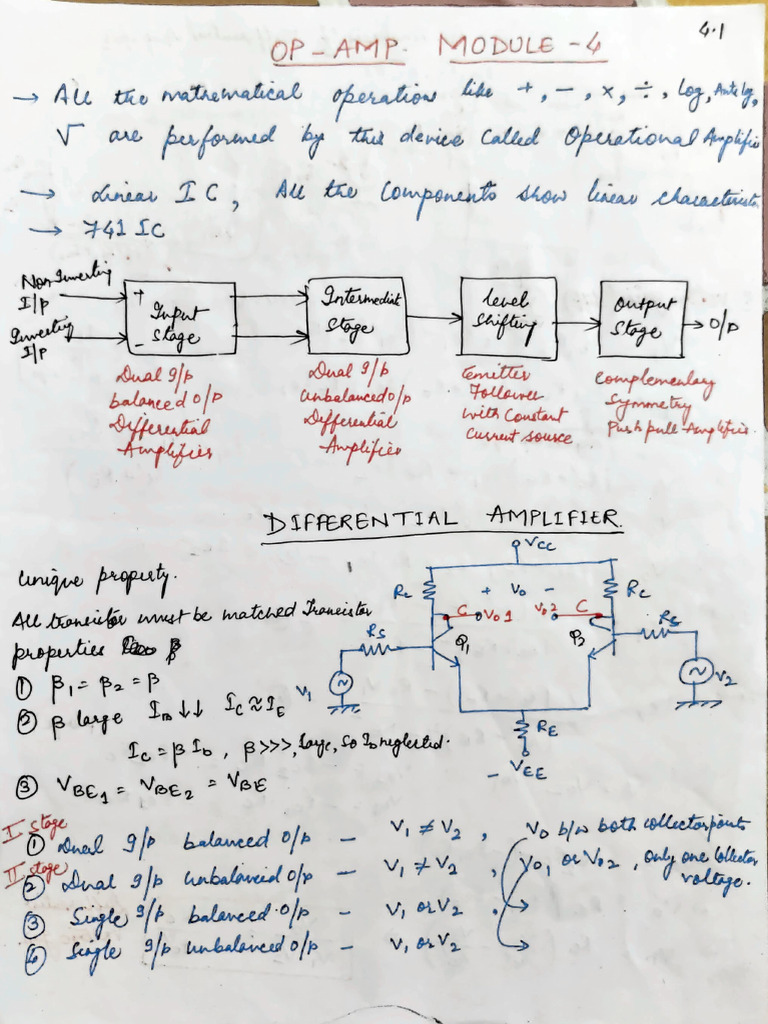 4.1
OP-AMP. MODULE-4
→ All the mathematical operation like +, −, ×, ÷, log, Antilog,
√ are performed by this device called Operational Amplifie
→ Linear IC, All the components show linear characteristic
→ 741 IC
Non Inverting
I/P
Inverting
I/P
+
−
Input
Stage
Intermediate
Stage
Level
Shifting
Output
Stage
O/P
Dual I/p
balanced O/p
Differential
Amplifier
Dual I/p
Unbalanced O/p
Differential
Amplifier
Emitter
Follower
with Constant
Current source
Complementary
Symmetry
Push pull Amplifie.
DIFFERENTIAL AMPLIFIER.
Unique property.
All transistor must be matched Transistor
properties β
① β1 = β2 = β
② β large IB ↓↓ IC ≈ IE
IC = β Ib, β>>>, large, so Ib neglected.
③ VBE1 = VBE2 = VBE
VCC
RC + Vo − RC
C Vo1 Vo2 C
RS Q1 Q2 RS
V1 V2
RE
−VEE
I stage
① Dual I/p balanced O/p − V1 ≠ V2, Vo b/w both collector points
II stage
② Dual I/p unbalanced O/p − V1 ≠ V2, Vo1 or Vo2, only one collector
voltage.
③ Single I/p balanced O/p − V1 or V2.
④ Single I/p unbalanced O/p − V1 or V2